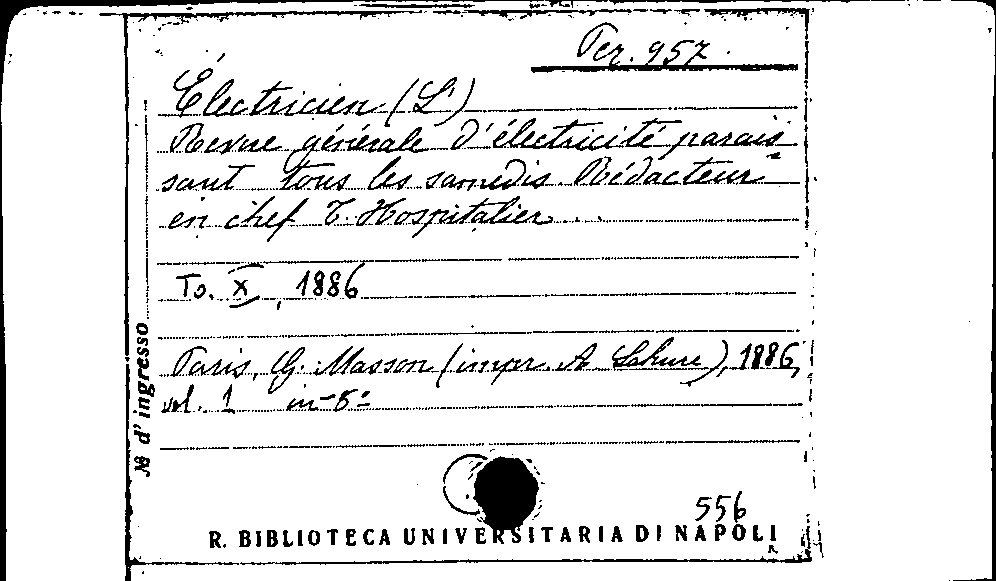 Per. 957
Électricien (L')
Revue générale d'électricité parais=
sant tous les samedis. Rédacteur
en chef E. Hospitalier ...
To. X, 1886
Paris, G. Masson (impr. A. Lahure), 1886,
vol. 1 in-8º
№ d'ingresso
556
R. BIBLIOTECA UNIVERSITARIA DI NAPOLI